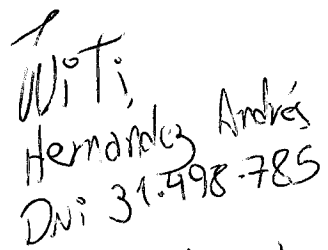 Witi,
Hernandez Andrés
Dni 31.498.785